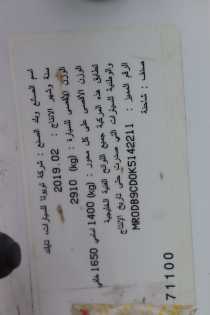 اسم الصانع وبلد الصنع : شركة تويوتا للسيارات، تايلاند
سنة وشهر الإنتاج : 2019.02
الوزن الأقصى للسيارة : (kg) 2910
الوزن الأقصى على كل محور : (kg) 1400 أمامي 1650 خلفي
تطابق هذه المركبة جميع اللوائح الفنية الخليجية
والوطنية للسيارات التي صدرت حتى تاريخ الإنتاج
الرقم المميز : MR0DB9CD0K5142211
صنف : شاحنة
71100